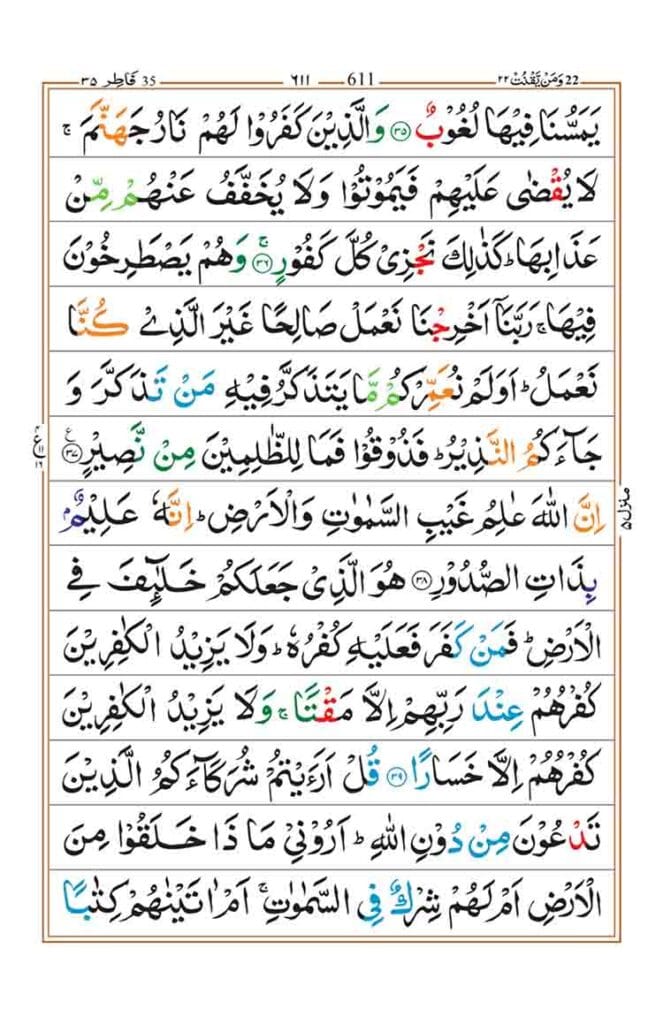 35 فَاطِر ٣٥ 611 ٦١١ 22 وَمَنْ يَّقْنُتْ ٢٢
يَمَسُّنَا فِيْهَا لُغُوْبٌ ﴿٣٥﴾ وَالَّذِيْنَ كَفَرُوْا لَهُمْ نَارُ جَهَنَّمَ ۚ
لَا يُقْضٰى عَلَيْهِمْ فَيَمُوْتُوْا وَلَا يُخَفَّفُ عَنْهُمْ مِّنْ
عَذَابِهَا ؕ كَذٰلِكَ نَجْزِىْ كُلَّ كَفُوْرٍ ۚ ﴿٣٦﴾ وَهُمْ يَصْطَرِخُوْنَ
فِيْهَا ۚ رَبَّنَاۤ اَخْرِجْنَا نَعْمَلْ صَالِحًا غَيْرَ الَّذِىْ كُنَّا
نَعْمَلُ ؕ اَوَلَمْ نُعَمِّرْكُمْ مَّا يَتَذَكَّرُ فِيْهِ مَنْ تَذَكَّرَ وَ
جَآءَكُمُ النَّذِيْرُ ؕ فَذُوْقُوْا فَمَا لِلظّٰلِمِيْنَ مِنْ نَّصِيْرٍ ﴿٣٧﴾
اِنَّ اللّٰهَ عٰلِمُ غَيْبِ السَّمٰوٰتِ وَالْاَرْضِ ؕ اِنَّهٗ عَلِيْمٌۢ
بِذَاتِ الصُّدُوْرِ ﴿٣٨﴾ هُوَ الَّذِىْ جَعَلَكُمْ خَلٰٓئِفَ فِى
الْاَرْضِ ؕ فَمَنْ كَفَرَ فَعَلَيْهِ كُفْرُهٗ ؕ وَلَا يَزِيْدُ الْكٰفِرِيْنَ
كُفْرُهُمْ عِنْدَ رَبِّهِمْ اِلَّا مَقْتًا ۚ وَلَا يَزِيْدُ الْكٰفِرِيْنَ
كُفْرُهُمْ اِلَّا خَسَارًا ﴿٣٩﴾ قُلْ اَرَءَيْتُمْ شُرَكَآءَكُمُ الَّذِيْنَ
تَدْعُوْنَ مِنْ دُوْنِ اللّٰهِ ؕ اَرُوْنِىْ مَا ذَا خَلَقُوْا مِنَ
الْاَرْضِ اَمْ لَهُمْ شِرْكٌ فِى السَّمٰوٰتِ ۚ اَمْ اٰتَيْنٰهُمْ كِتٰبًا
منزل ۵